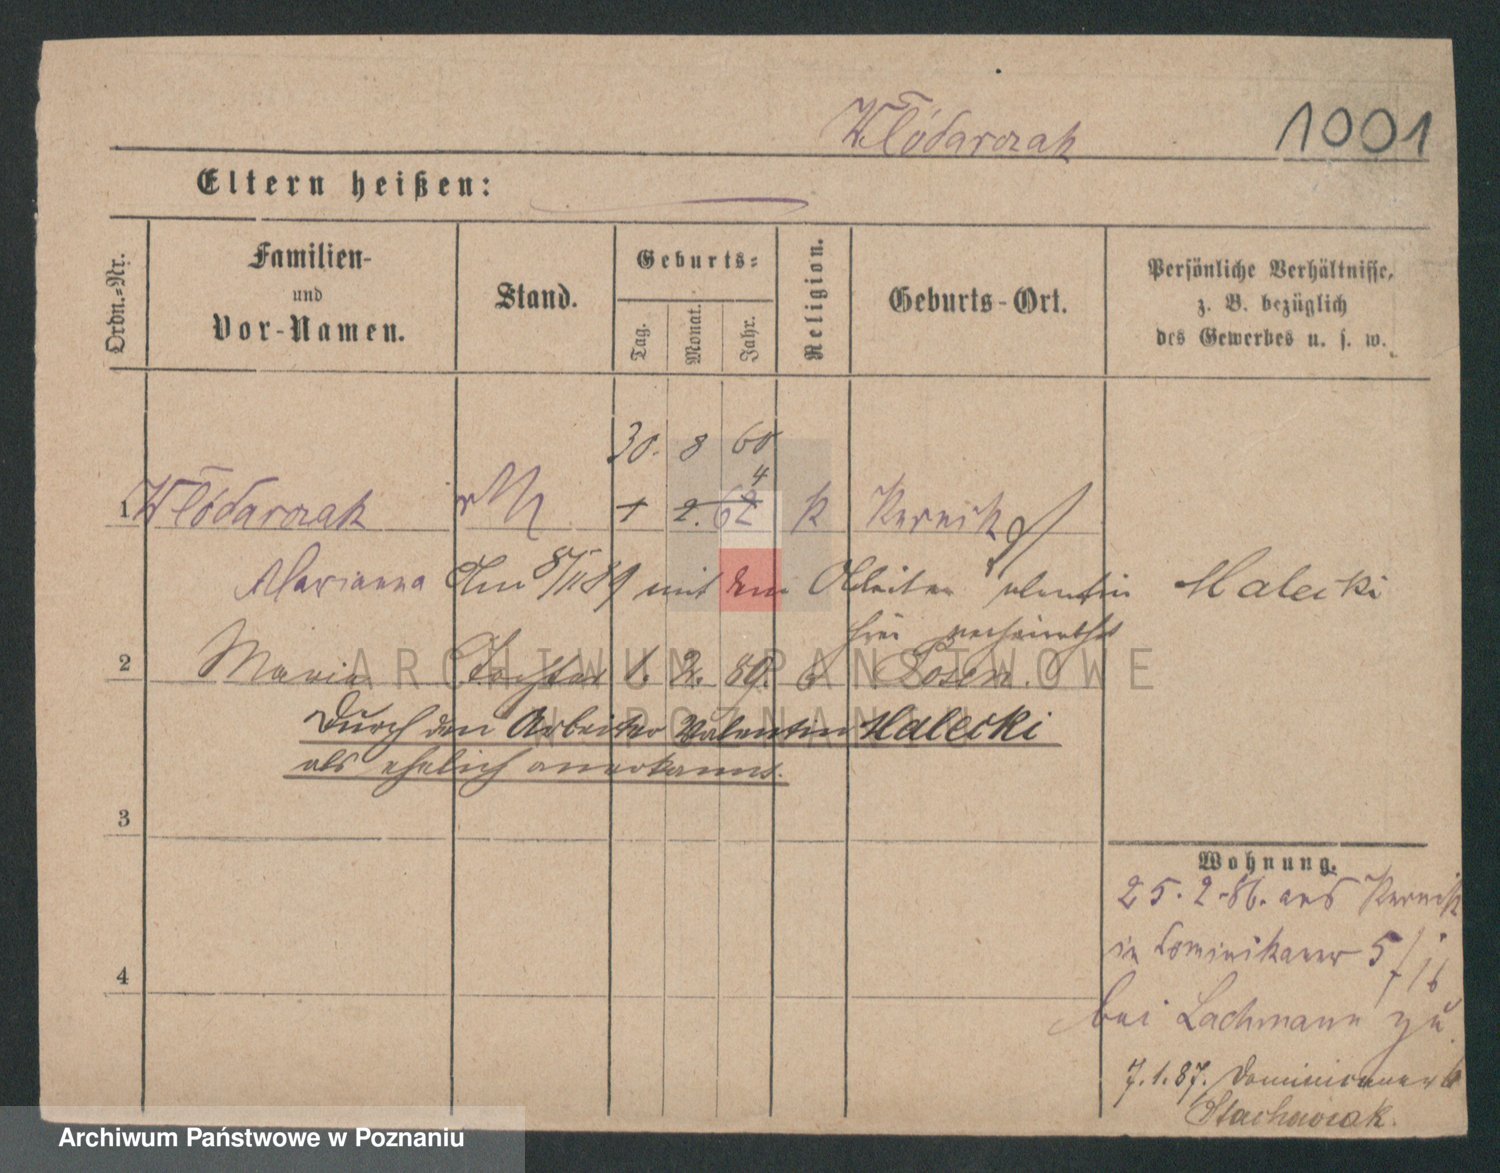 Włódarczak 1001
Eltern heißen:
Ordn.-Nr.
Familien-
und
Vor-Namen.
Stand.
Geburts-
Tag.
Monat.
Jahr.
Religion.
Geburts-Ort.
Persönliche Verhältnisse,
z. B. bezüglich
des Gewerbes u. s. w.
30. 8 60
4
1 Włódarczak 1 2. 62 k Kurnik
Marianna Am mit dem Arbeiter Malecki
verheirathet
2 Maria Tochter 1. 2. 89. Posen.
Durch den Arbeiter Valentin Malecki
als ehelich anerkannt.
3
4
Wohnung.
25. 2. 86. aus Kurnik
in Dominikaner 5
bei Lachmann zu
7. 1. 87. Dominikaner
Stachowiak.
ARCHIWUM PAŃSTWOWE
W POZNANIU
Archiwum Państwowe w Poznaniu